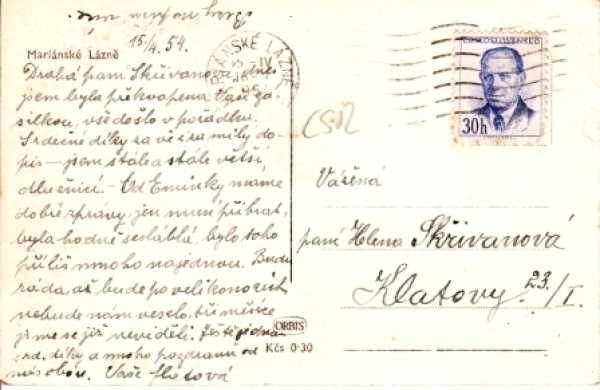 Mariánské Lázně
15/4. 54.
Drahá paní Skřivanová, dnes
jsem byla překvapena Vaší zá-
silkou, vše došlo v pořádku.
Srdečné díky za vše i za milý do-
pis – jsem stále a stále větší
dlužnicí. – Od Eminky máme
dobré zprávy, jen musí přibrat,
byla hodně sesláblá, bylo toho
příliš mnoho najednou. Budu
ráda, až bude po velikonocích
nebude nám veselo, tři měsíce
jsme se již neviděli. Ještě jednou
srd. díky a mnoho pozdravů od
nás obou. Vaše
ORBIS
Kčs 0·30
MARIÁNSKÉ LÁZNĚ
IV
ČESKOSLOVENSKO
30h
Vážená
paní Helena Skřivanová
Klatovy 23/I.